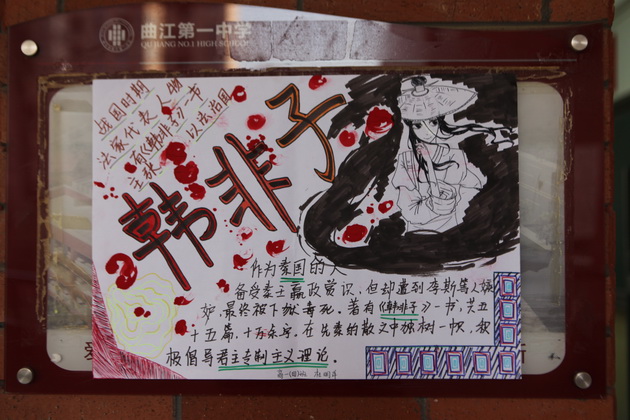 曲江第一中学
QU JIANG NO.1 HIGH SCHOOL
战国时期
法家代表人
有《韩非子》一书
主张
以法治国
韩非子
作为秦国的人
备受秦王嬴政赏识，但却遭到李斯等人
妒，最终被下狱毒死。著有《韩非子》一书，共五
十五篇，十万余字，在先秦的散文中独树一帜，极
极倡导君主专制主义理论。